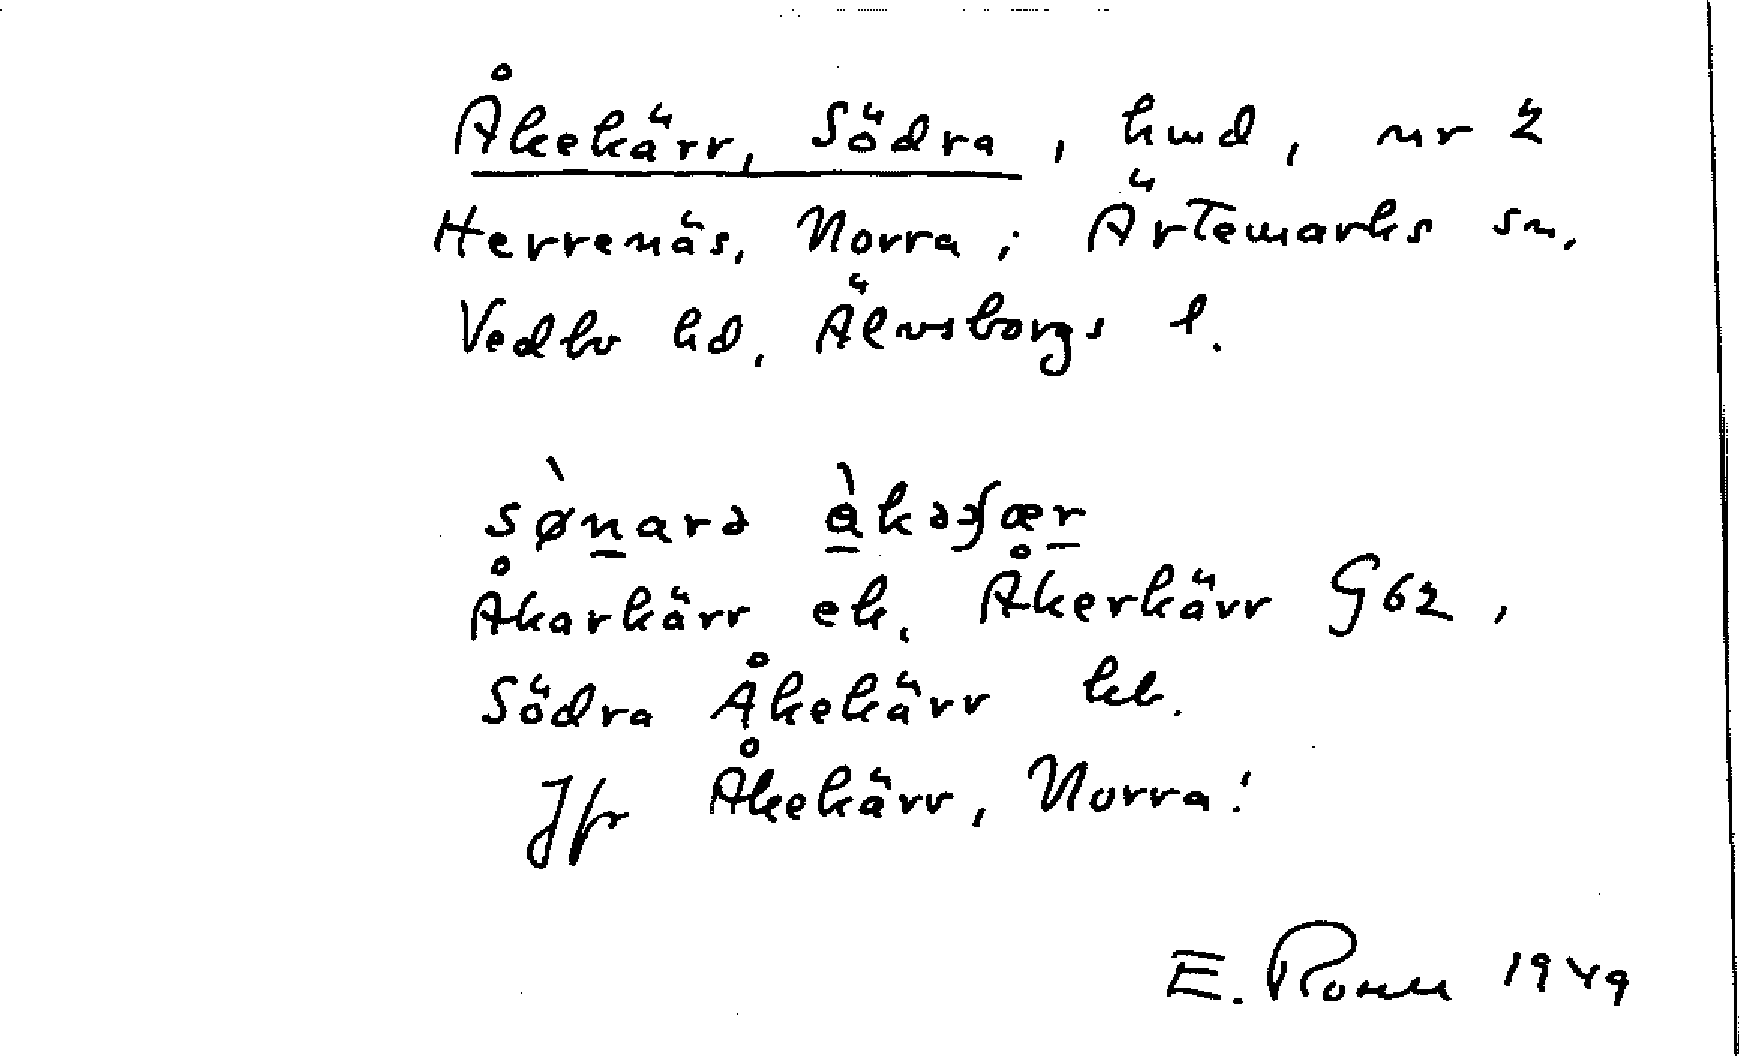 Åkekärr, Södra, hmd, nr 2
Herrenäs, Norra; Ärtemarks sn,
Vedbo hd, Älvsborgs l.
sø̀narə
Åkarkärr ek, Åkerkärr G62,
Södra Åkekärr kb.
Jfr Åkekärr, Norra!
E. 1949